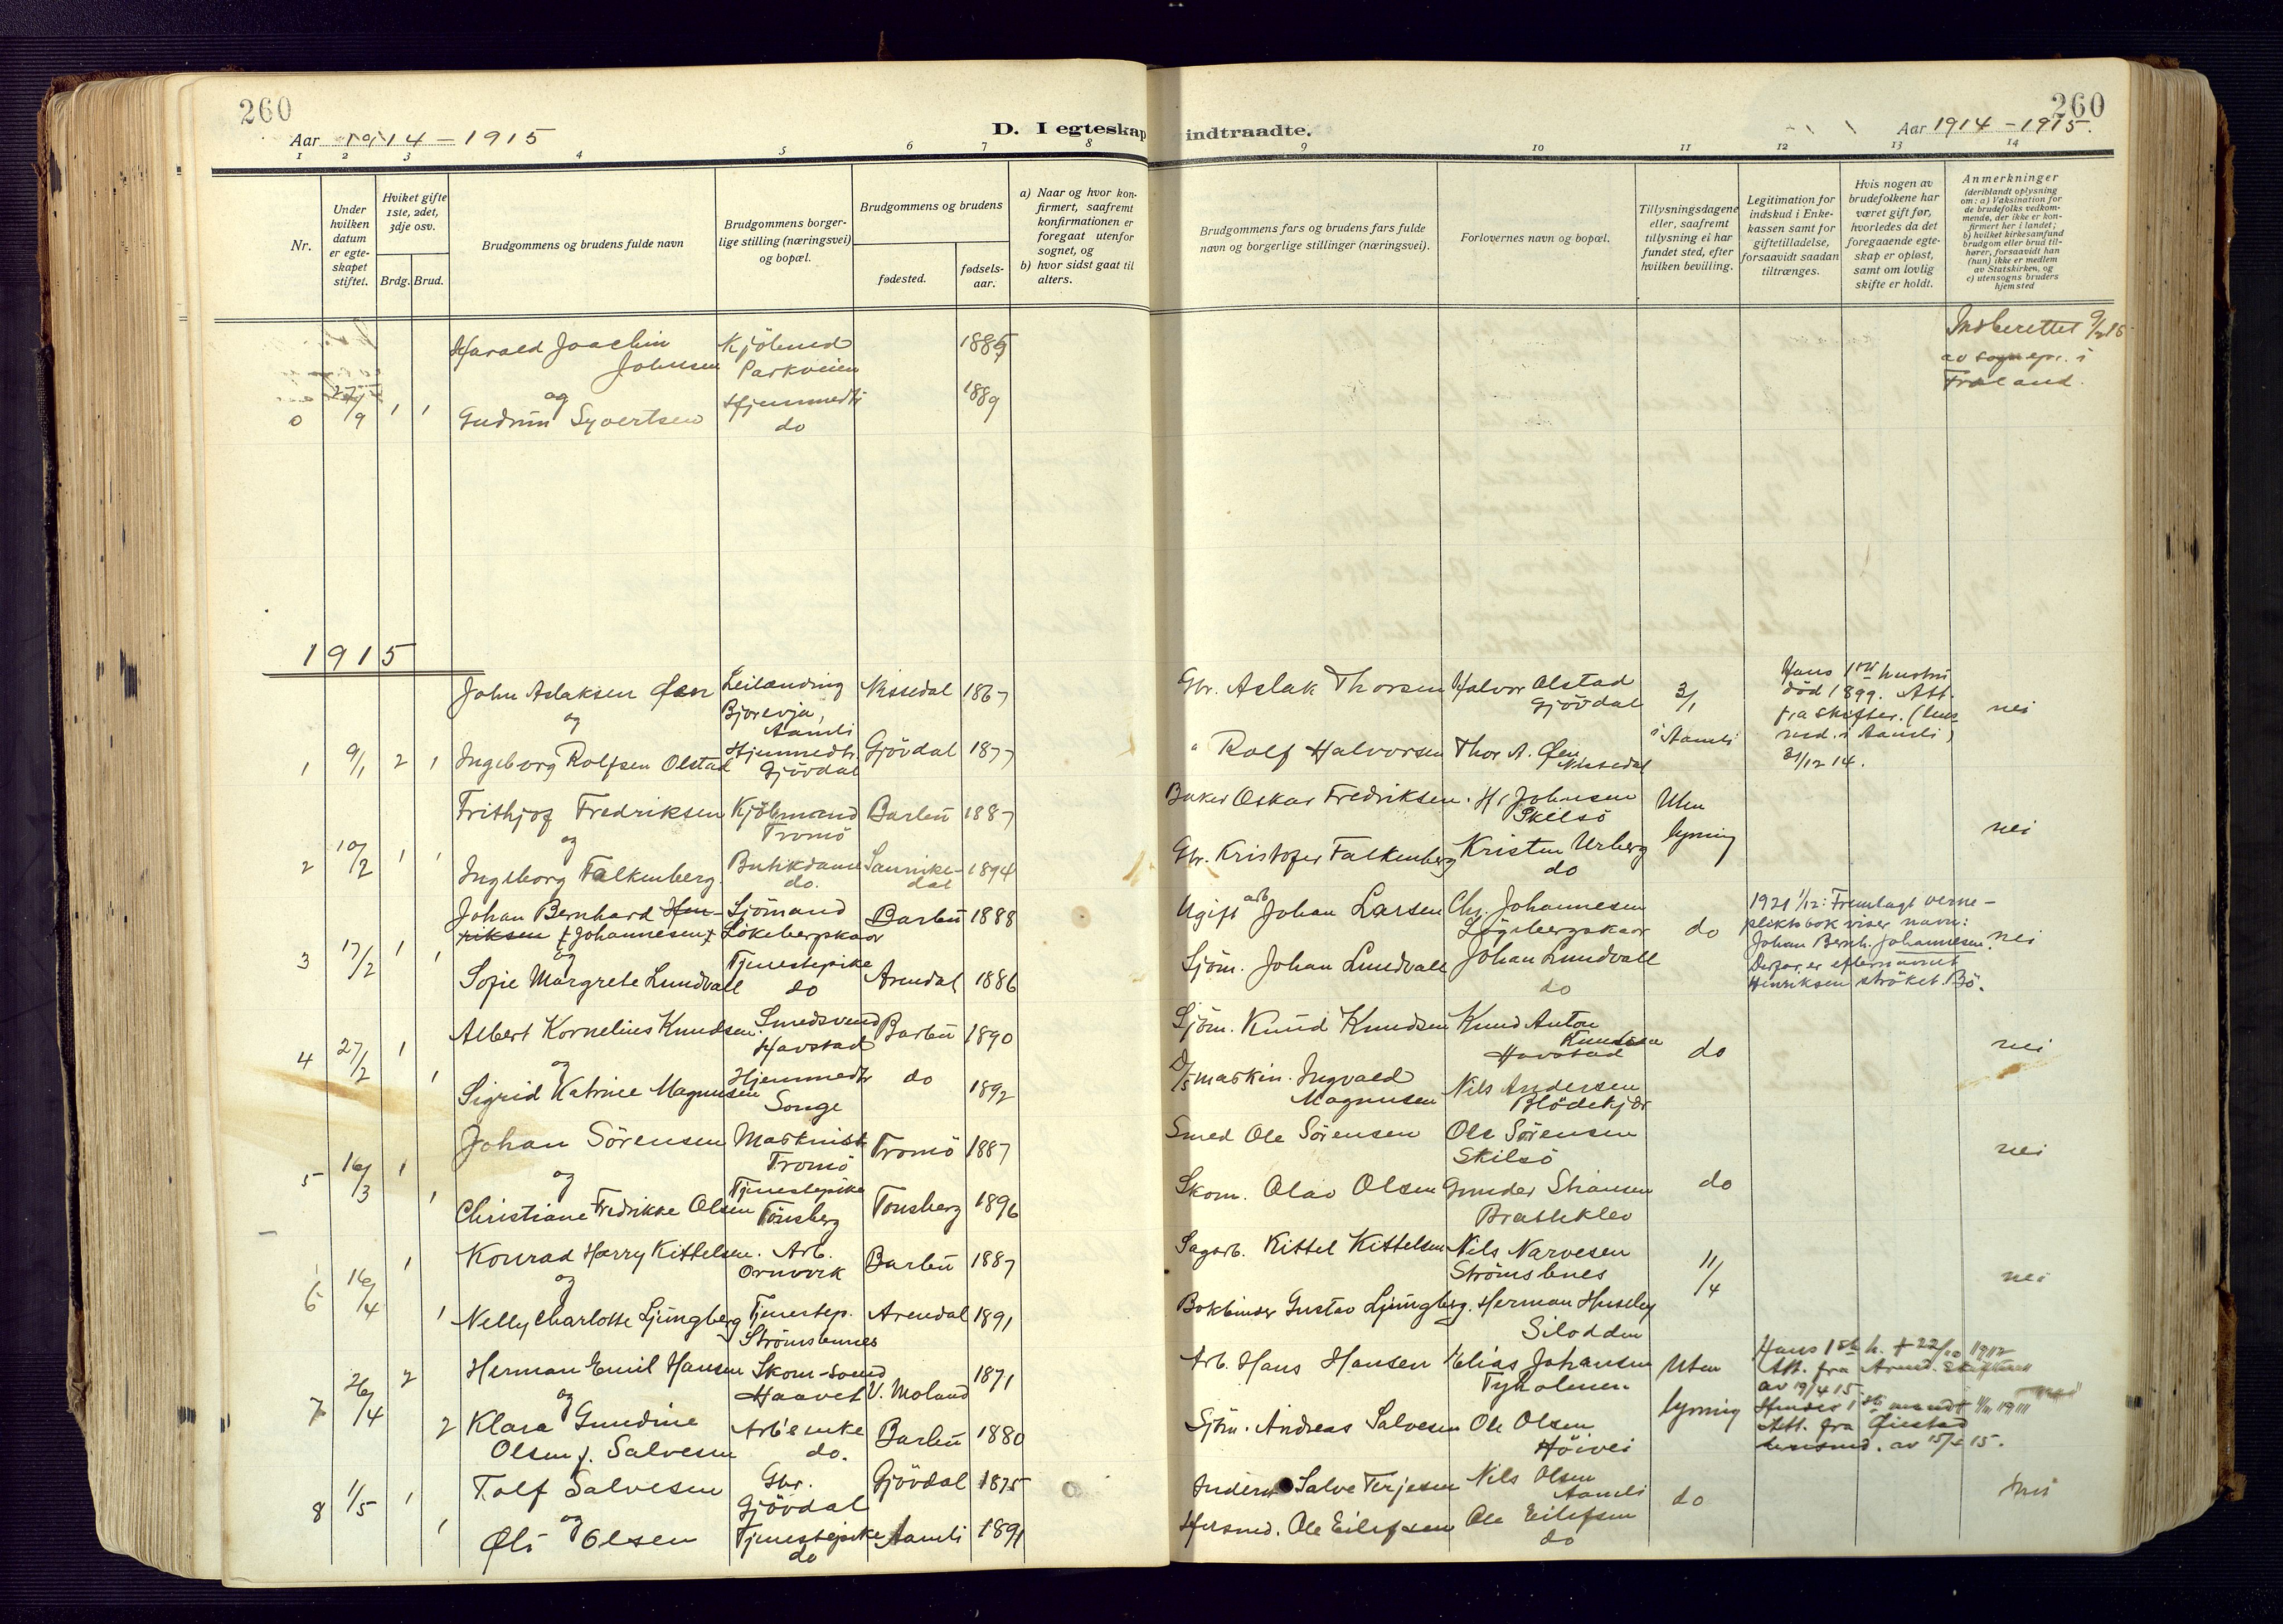 260
Aar 1914 - 1915
D. I egteskap indtraadte.
260
Aar 1914 - 1915.
1 2 3 4 5 6 7 8 9 10 11 12 13 14
Nr.
Under hvilken datum er egteskapet stiftet.
Hviket gifte 1ste, 2det, 3dje osv.
Brdg. Brud.
Brudgommens og brudens fulde navn
Brudgommens borgerlige stilling (næringsvei) og bopæl.
Brudgommens og brudens
fødested.
fødselsaar.
a) Naar og hvor konfirmert, saafremt konfirmationen er foregaat utenfor sognet, og
b) hvor sidst gaat til alters.
Brudgommens fars og brudens fars fulde navn og borgerlige stillinger (næringsvei).
Forlovernes navn og bopæl.
Tillysningsdagene eller, saafremt tillysning ei har fundet sted, efter hvilken bevilling.
Legitimation for indskud i Enkekassen samt for giftetilladelse, forsaavidt saadan tiltrænges.
Hvis nogen av brudefolkene har været gift før, hvorledes da det foregaaende egteskap er opløst, samt om lovlig skifte er holdt.
Anmerkninger
(deriblandt oplysning om: a) Vaksination for de brudefolks vedkommende, der ikke er konfirmert her i landet; b) hvilket kirkesamfund brudgom eller brud tilhører, forsaavidt han (hun) ikke er medlem av Statskirken, og c) utensogns bruders hjemsted
Harald Joachim Johnsen Kjöbmd Parkveien 1885
og
0 27/9 1 1 Gudrun Syvertsen Hjemmedtr do 1889
Indberettet 9/2 15 av sognepr. i Froland.
1915
John Aslaksen Øen Leilænding Bjorevja, Aamli Nissedal 1867 Gbr. Aslak Thorsen Halvor Olstad Gjövdal 3/1
og
1 9/1 2 1 Ingeborg Rolfsen Olstad Hjemmedtr. Gjövdal Gjövdal 1877 " Rolf Halvorsen Thor A. Øen Nissedal i Aamli
Hans 1ste hustru död 1899. Att. fra skifter. (lensmd. i Aamli) 31/12 14. nei
Frithjof Fredriksen Kjöbmand Tromö Barbu 1887 Baker Oskar Fredriksen. Hr Johnsen Skilsö Uten lysning nei
og
2 10/2 1 1 Ingeborg Falkenberg Butikdame do. Sannikedal 1894 Gbr. Kristofer Falkenberg Kristen Urberg do
Johan Bernhard Henriksen (Johannesen) Sjömand Lökebergskaar Barbu 1888 Ugift arb Johan Larsen Chr. Johannesen Lögebergskaar do
og
3 17/2 1 1 Sofie Margrete Lundvall Tjenestepike do Arendal 1886 Sjöm. Johan Lundvall Johan Lundvall do
1921 1/12: Fremlagt vernepliktsbok viser navn: Johan Bernh. Johannesen. Derfor er efternavnet Henriksen ströket. Bö. nei
Albert Kornelius Knudsen. Smedsvend Havstad Barbu 1890 Sjöm. Knud Knudsen Knud Anton Knudsen Havstad do nei
og
4 27/2 1 1 Sigrid Katrine Magnusen Hjemmedtr Songe do 1892 D/S maskin. Ingvald Magnusen Nils Andersen Blödekjær
Johan Sörensen Maskinist Tromö Tromö 1887 Smed Ole Sörensen Ole Sörensen Skilsö nei
og
5 16/3 1 1 Christiane Fredrikke Olsen Tjenestepike Tönsberg Tønsberg 1896 Skom. Olav Olsen Gunder Stiansen Bratteklev do
Konrad Harry Kittelsen. Arb. Barbu 1887 Sagarb. Kittel Kittelsen Nils Narvesen Strömsbnes 11/4 nei
og
6 16/4 1 1 Nelly Charlotte Ljungberg Tjenestep. Strömsbunes Arendal 1891 Bokbinder Gustav Ljungberg. Herman Huseby Silodden
Herman Emil Hansen Skom-svend Haavet V. Moland 1871 Arb. Hans Hansen Elias Johansen Tyholmen Uten lysning
og
7 26/4 2 2 Klara Gundine Olsen f. Salvesen Arb's enke do. Barbu 1880 Sjöm. Andreas Salvesen Ole Olsen. Höivei
Hans 1ste h. † 22/10 1912 Att. fra Arend. skifteret av 19/4 15. Hendes 1ste mand † 1911 Att. fra Øiestad lensmd. av 15/2 15.
Tolf Salvesen Gbr. Gjövdal Gjövdal 1875 Salve Terjesen Nils Olsen Aamli do nei
og
8 1/5 1 1 Øli Olsen Tjenestepike do Aamli 1891 Ole Eilefsen Ole Eilefsen do